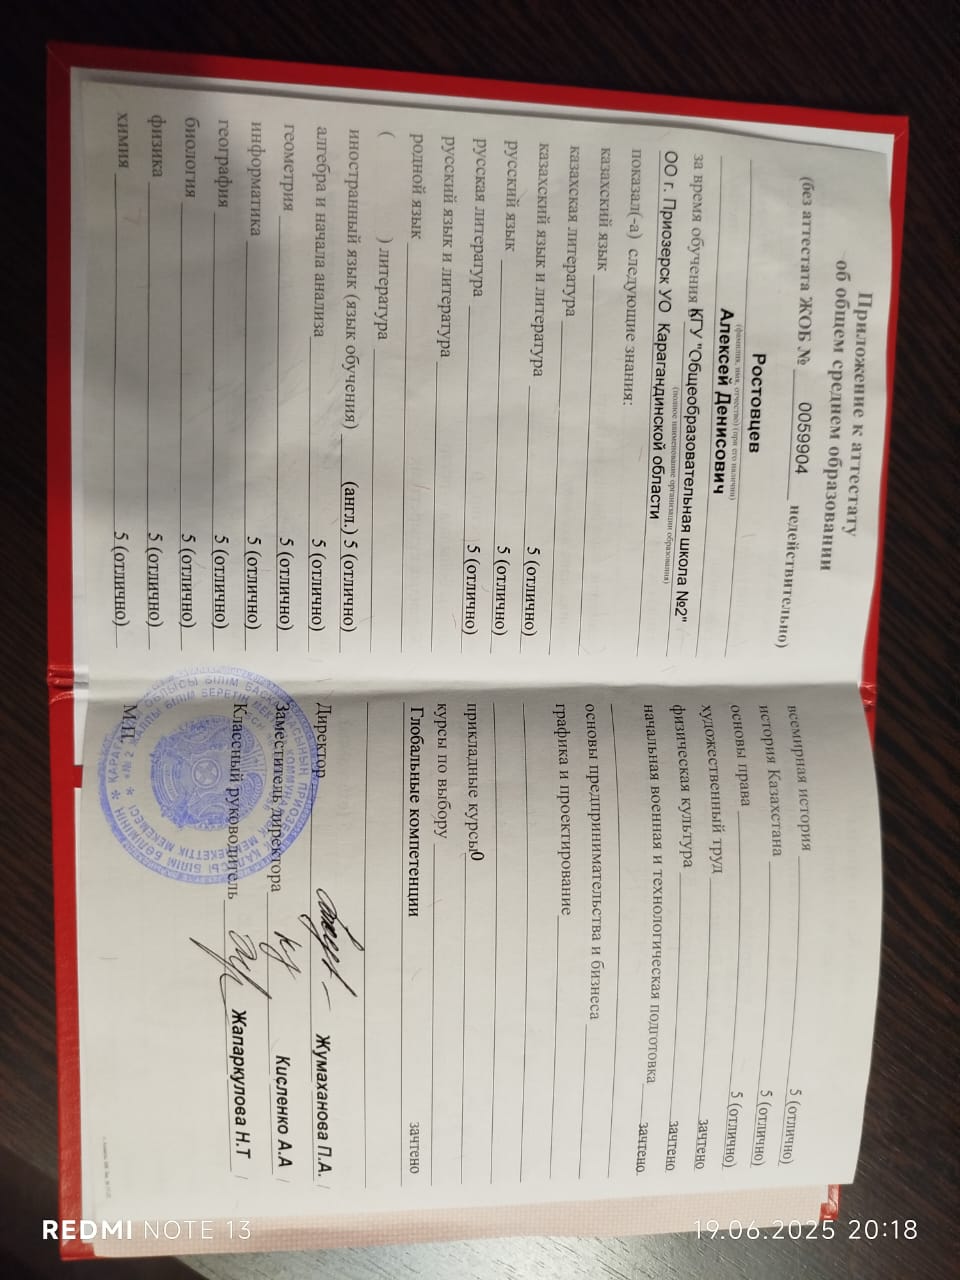 Приложение к аттестату
об общем среднем образовании
(без аттестата ЖОБ № 0059904 недействительно)
Ростовцев
(фамилия, имя, отчество) (при его наличии)
Алексей Денисович
за время обучения КГУ "Общеобразовательная школа №2"
(полное наименование организации образования)
ОО г. Приозерск УО Карагандинской области
показал(-а) следующие знания:
казахский язык
казахская литература
казахский язык и литература 5 (отлично)
русский язык 5 (отлично)
русская литература 5 (отлично)
русский язык и литература
родной язык
( ) литература
иностранный язык (язык обучения) (англ.) 5 (отлично)
алгебра и начала анализа 5 (отлично)
геометрия 5 (отлично)
информатика 5 (отлично)
география 5 (отлично)
биология 5 (отлично)
физика 5 (отлично)
химия 5 (отлично)
всемирная история 5 (отлично)
история Казахстана 5 (отлично)
основы права 5 (отлично)
художественный труд зачтено
физическая культура зачтено
начальная военная и технологическая подготовка зачтено
основы предпринимательства и бизнеса
графика и проектирование
прикладные курсы0
курсы по выбору
Глобальные компетенции зачтено
Директор Жумаханова П.А. /
Заместитель директора Кисленко А.А /
Классный руководитель Жапаркулова Н.Т /
М.П.
REDMI NOTE 13
19.06.2025 20:18